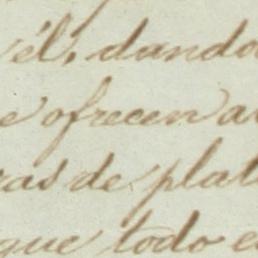 él, dando
e ofrecen a
ras de plat
que todo e